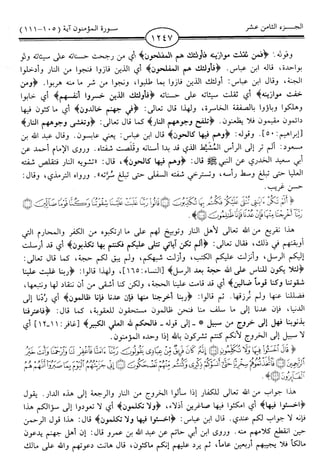 الجـــزء الثامن عشر
سـورة المؤمنون آية (١٠٥-١١١)
١٢٤٧
وقوله: ﴿فمن ثقلت موازينه فأولئك هم المفلحون﴾ أي من رجحت حسناته على سيئاته ولو
بواحدة، قاله ابن عباس. ﴿فأولئك هم المفلحون﴾ أي الذين فازوا فنجوا من النار وأدخلوا
الجنة، وقال ابن عباس: أولئك الذين فازوا بما طلبوا، ونجوا من شر ما منه هربوا. ﴿ومن
خفت موازينه﴾ أي ثقلت سيئاته على حسناته ﴿فأولئك الذين خسروا أنفسهم﴾ أي خابوا
وهلكوا وباؤوا بالصفقة الخاسرة، ولهذا قال تعالى: ﴿في جهنم خالدون﴾ أي ماكثون فيها
دائمون مقيمون فلا يظعنون. ﴿تلفح وجوههم النار﴾ كما قال تعالى: ﴿وتغشى وجوههم النار﴾
[إبراهيم: ٥٠]. وقوله: ﴿وهم فيها كالحون﴾ قال ابن عباس: يعني عابسون. وقال عبد الله بن
مسعود: ألم تر إلى الرأس المشيط الذي قد بدا أسنانه وقلصت شفتاه. وروى الإمام أحمد عن
أبي سعيد الخدري عن النبي ﷺ قال: ﴿وهم فيها كالحون﴾، قال: «تشويه النار فتقلص شفته
العليا حتى تبلغ وسط رأسه، وتسترخي شفته السفلى حتى تبلغ سُرَّته». ورواه الترمذي، وقال:
حسن غريب.
﴿أَلَمْ تَكُنْ ءَايَٰتِي تُتْلَىٰ عَلَيْكُمْ فَكُنتُم بِهَا تُكَذِّبُونَ ۝ قَالُوا۟ رَبَّنَا غَلَبَتْ عَلَيْنَا شِقْوَتُنَا وَكُنَّا قَوْمًا ضَآلِّينَ ۝
رَبَّنَآ أَخْرِجْنَا مِنْهَا فَإِنْ عُدْنَا فَإِنَّا ظَٰلِمُونَ ۝﴾
هذا تقريع من الله تعالى لأهل النار وتوبيخ لهم على ما ارتكبوه من الكفر والمحارم التي
أوبقتهم في ذلك، فقال تعالى: ﴿ألم تكن آياتي تتلى عليكم فكنتم بها تكذبون﴾ أي قد أرسلت
إليكم الرسل، وأنزلت عليكم الكتب، وأزلت شبهكم، ولم يبق لكم حجة، كما قال تعالى:
﴿لئلا يكون للناس على الله حجة بعد الرسل﴾ [النساء: ١٦٥]، ولهذا قالوا: ﴿ربنا غلبت علينا
شقوتنا وكنا قوماً ضالين﴾ أي قد قامت علينا الحجة، ولكن كنا أشقى من أن ننقاد لها ونتبعها،
فضللنا عنها ولم نُرزقها. ثم قالوا: ﴿ربنا أخرجنا منها فإن عدنا فإنا ظالمون﴾ أي رُدّنا إلى
الدنيا، فإن عدنا إلى ما سلف منا فنحن ظالمون مستحقون للعقوبة، كما قال: ﴿فاعترفنا
بذنوبنا فهل إلى خروج من سبيل * ـ إلى قوله ـ فالحكم لله العلي الكبير﴾ [غافر: ١١-١٢] أي
لا سبيل إلى الخروج لأنكم كنتم تشركون بالله إذا وحده المؤمنون.
هذا جواب من الله تعالى للكفار إذا سألوا الخروج من النار والرجعة إلى هذه الدار. يقول
﴿اخسئوا فيها﴾ أي امكثوا فيها صاغرين أذلاء، ﴿ولا تكلمون﴾ أي لا تعودوا إلى سؤالكم هذا
فإنه لا جواب لكم عندي. قال ابن عباس: ﴿اخسئوا فيها ولا تكلمون﴾ قال: هذا قول الرحمن
حين انقطع كلامهم منه. وروى ابن أبي حاتم عن عبد الله بن عمرو قال: إن أهل جهنم يدعون
مالكاً فلا يجيبهم أربعين عاماً، ثم يرد عليهم إنكم ماكثون، قال هانت دعوتهم والله على مالك